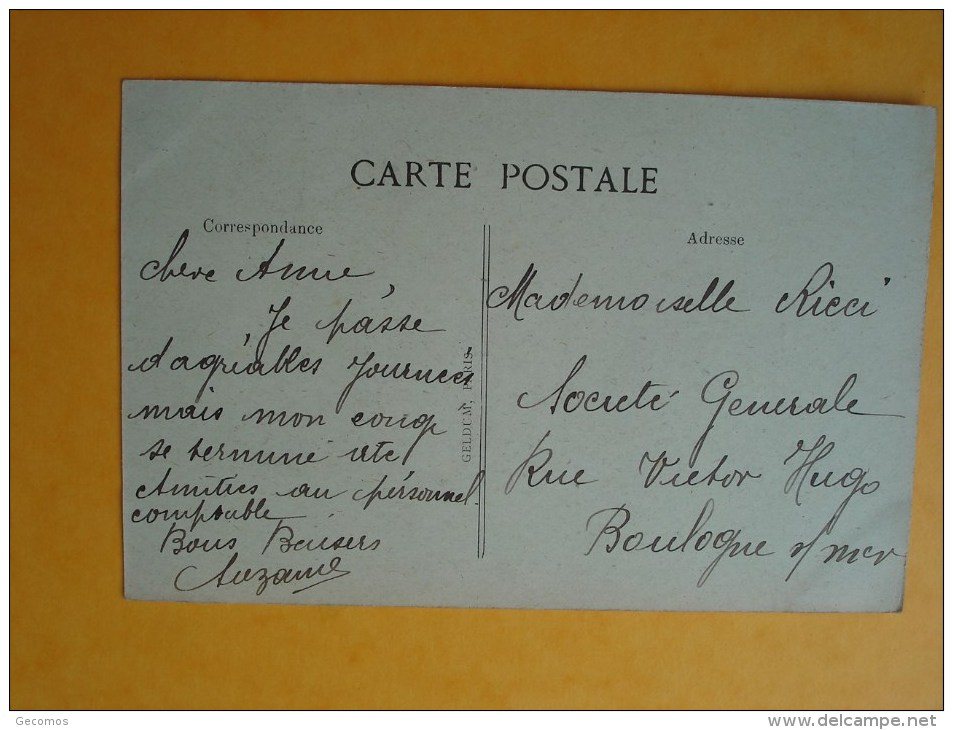 CARTE POSTALE
Correspondance
Adresse
Chere Annie,
Je passe
d'agréables Journées
mais mon congé
se termine vite
Amitiés au pérsonnel
comptable.
Bons Baisers
Suzanne
GELDUM, PARIS.
Mademoiselle Ricci
Societé Generale
Rue Victor Hugo
Boulogne s/mer
Gecomos
www.delcampe.net